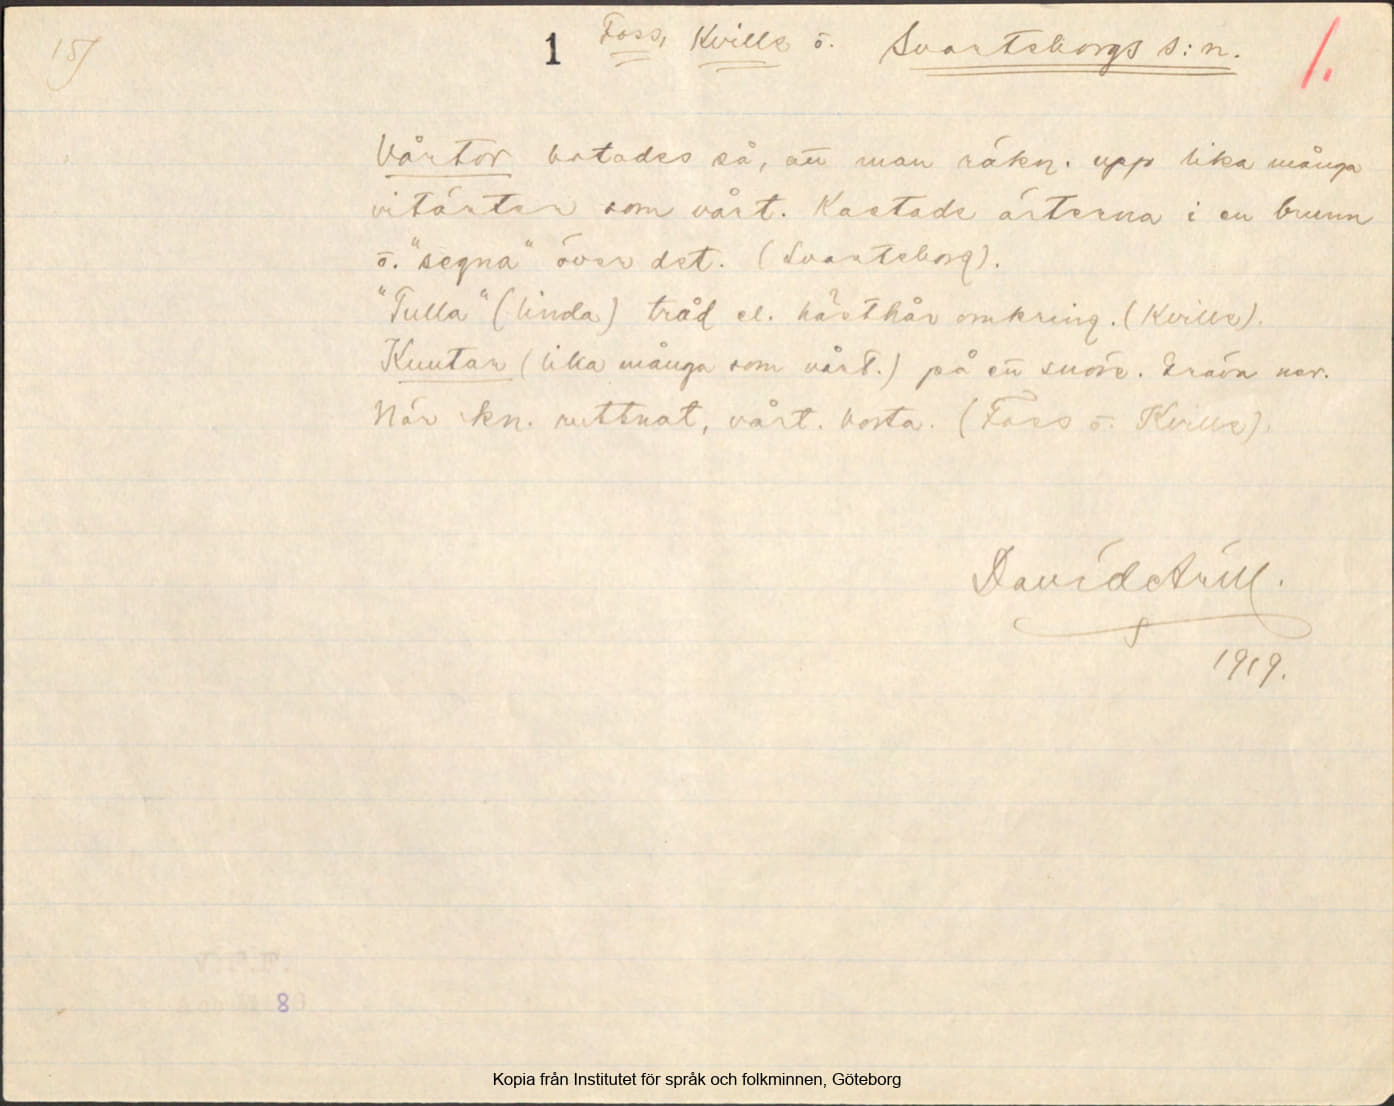 15/ 1 Foss, Kville o. Svarteborgs s:n. 1.
Vårtor botades så, att man räkn. upp lika många
vitärter som vårt. Kastade ärterna i en brunn
o. "segna" över det. (Svarteborg).
"Tulla" (linda) tråd el. hästhår omkring. (Kville).
Knutar (lika många som vårt.) på ett snöre. Gräva ner.
När kn. ruttnat, vårt. borta. (Foss o. Kville).
David Arill.
1919.
8
Kopia från Institutet för språk och folkminnen, Göteborg